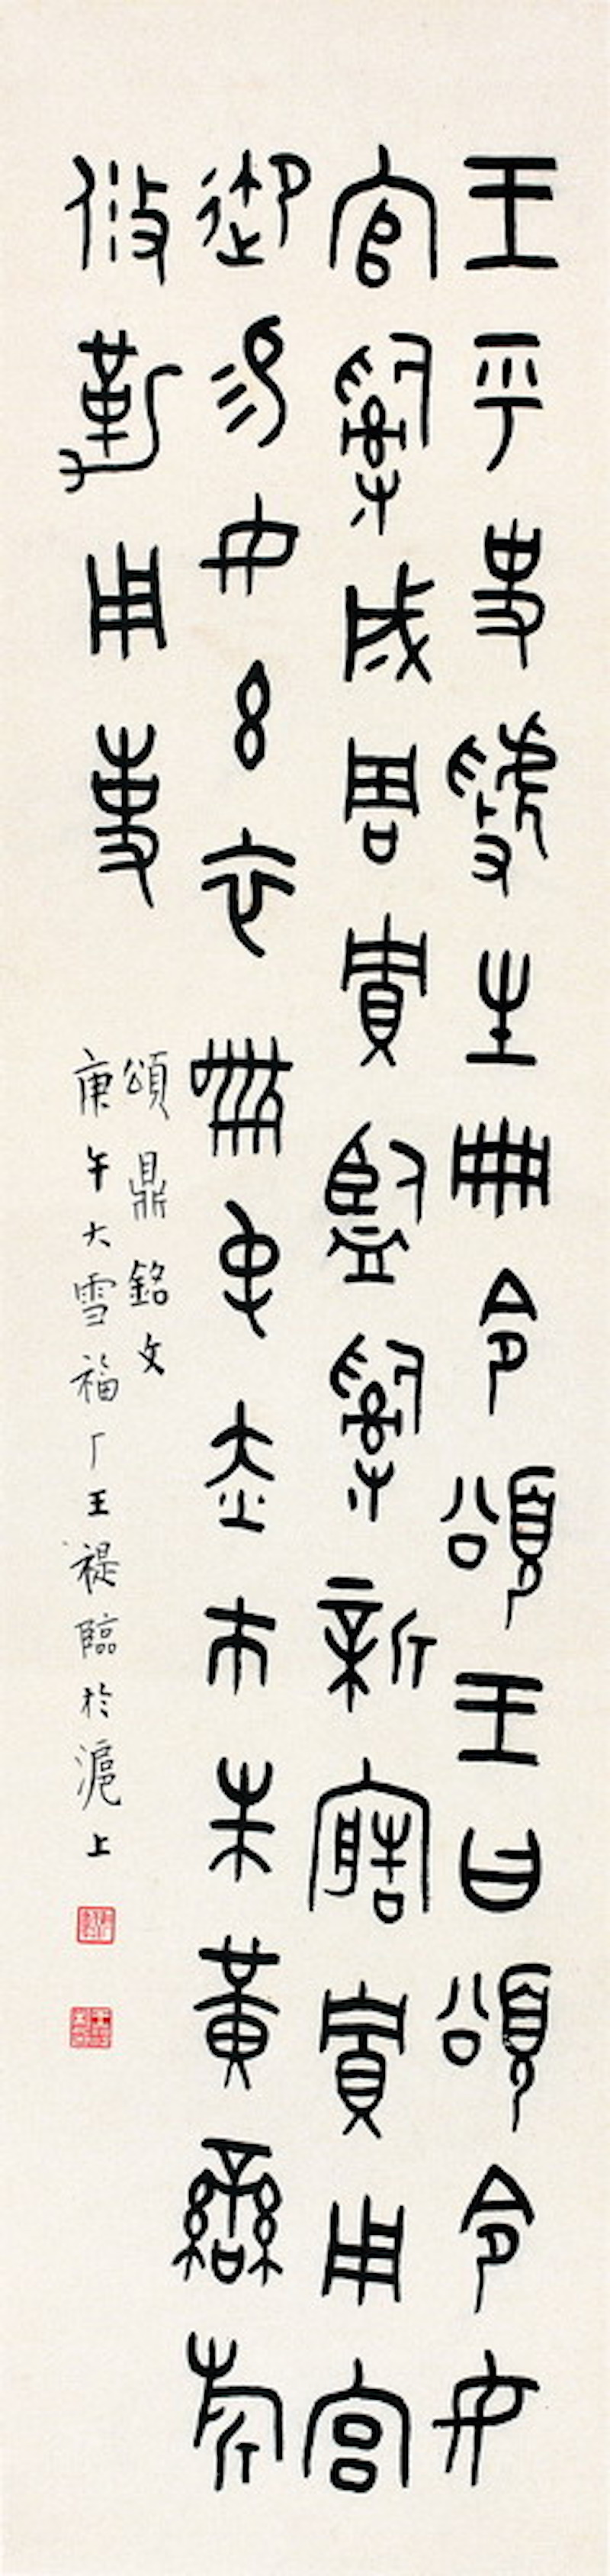 王乎史虢生册令頌王曰頌令女
官𤔲成周貯監𤔲新造貯用宮
御易女玄衣黹屯赤巿朱黃䜌旂
攸勒用事
頌鼎銘文
庚午大雪福厂王禔臨於滬上